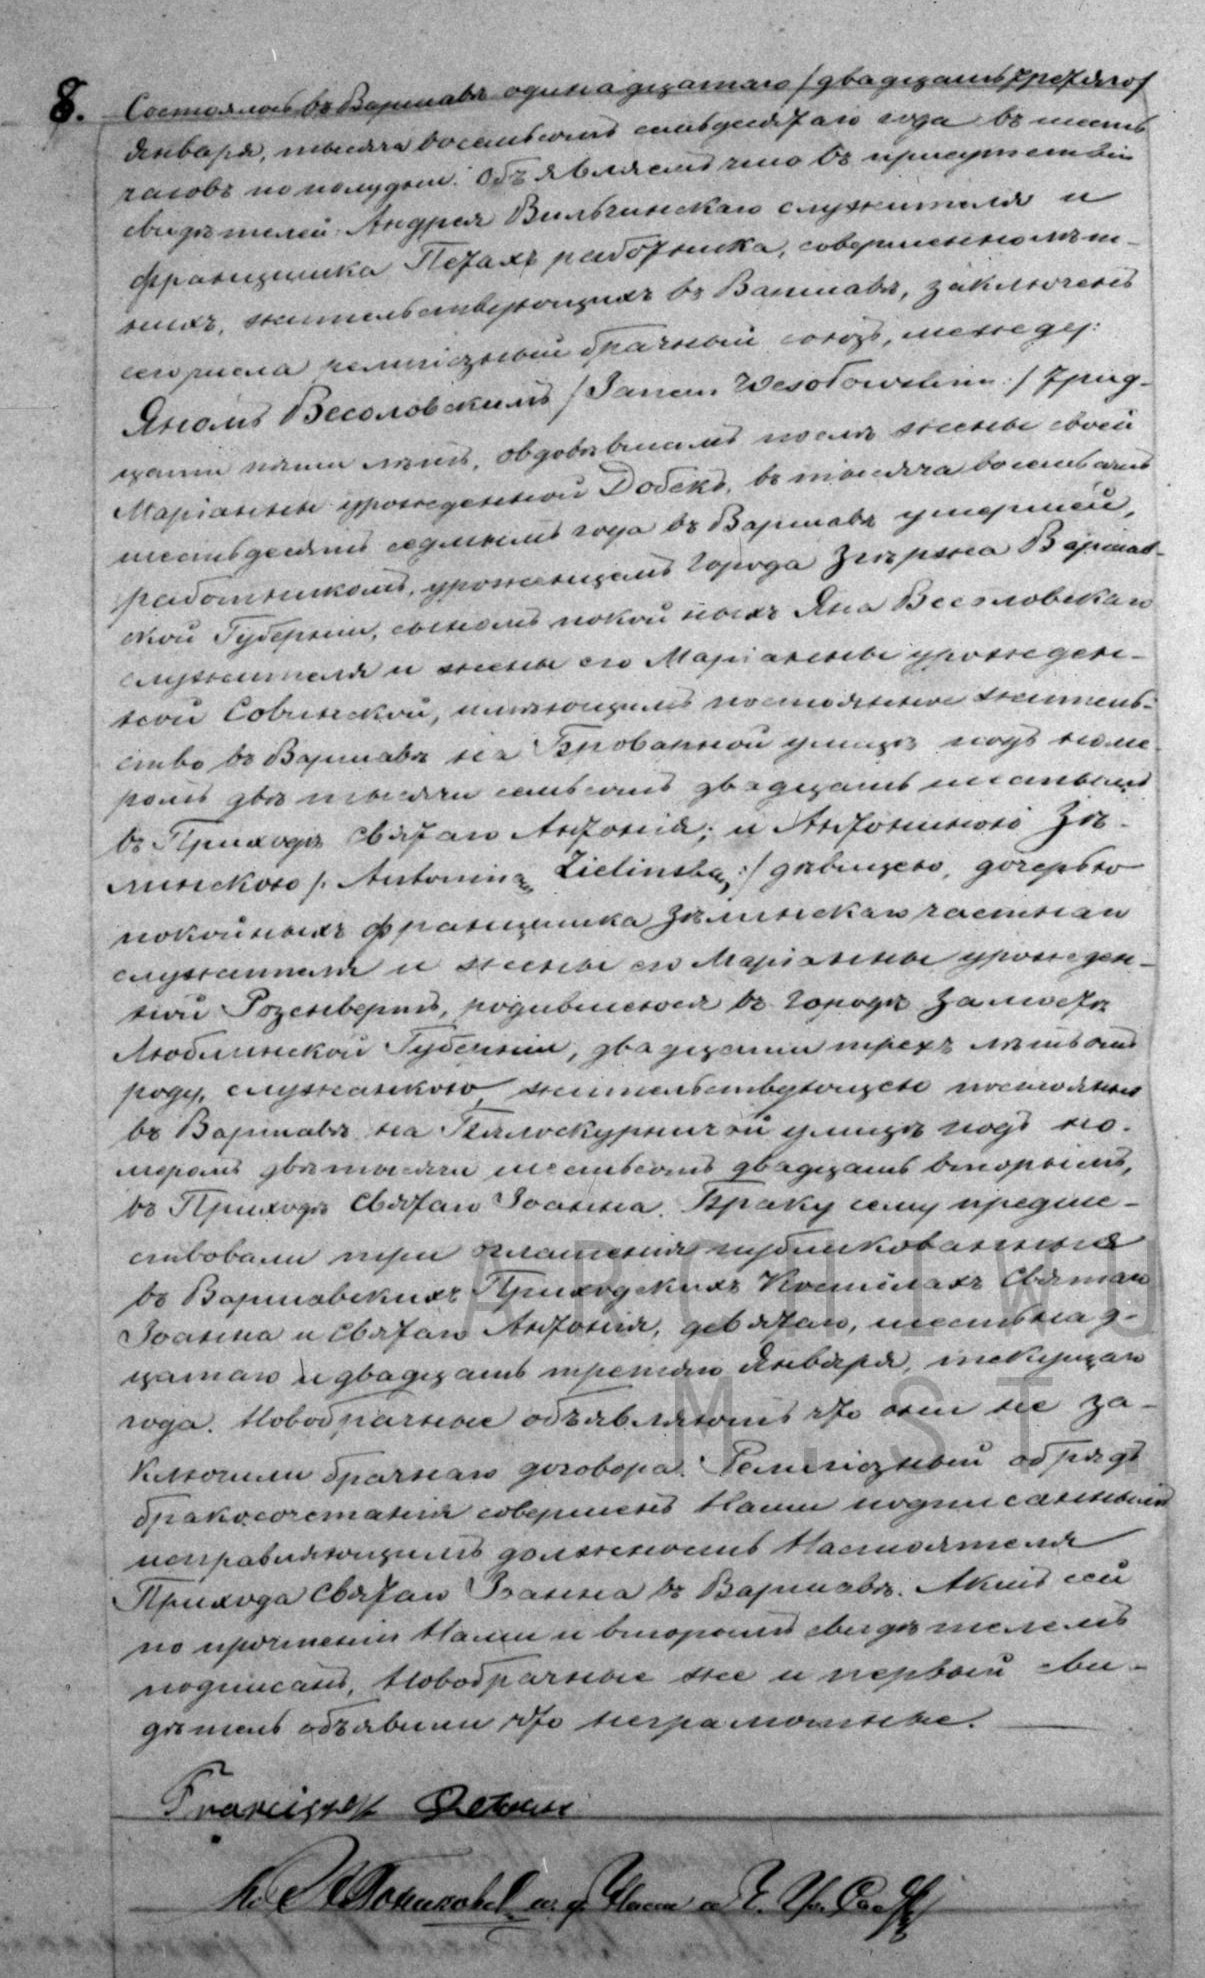 8. Состоялось въ Варшавѣ одинадцатаго / двадцать третяго /
Января, тысяча восемьсотъ семьдесятаго года въ шесть
часовъ по полудни. Объявляемъ что въ присутствіи
свидѣтелей Андрея Вильчинскаго служителя и
Францишка работника, совершеннолѣт-
нихъ, жительствующихъ въ Варшавѣ, заключенъ
сего числа религіозный брачный союзъ, между:
Яномъ Весоловскимъ / Janem Wesołowskim :/ трид-
цати пяти лѣтъ, овдовѣвшимъ послѣ жены своей
Маріанны урожденной Добекъ, въ тысяча восемьсотъ
шестьдесятъ седьмомъ года въ Варшавѣ умершей,
работникомъ, урожденцемъ города Згѣржа Варшав-
ской Губерніи, сыномъ покойныхъ Яна Весоловскаго
служителя и жены его Маріанны урожден-
ной Совинской, имѣющимъ постоянное житель-
ство въ Варшавѣ на Броварной улицѣ подъ номе-
ромъ двѣ тысячи семьсотъ двадцать шестымъ
въ Приходѣ Святаго Антонія; и Антониною Зѣ-
линскою /: Antoniną Zielinską :/ дѣвицею, дочерью
покойныхъ Францишка Зѣлинскаго частнаго
служителя и жены его Маріанны урожден-
ной Розенвертъ, родившеюся въ городѣ Замостѣ
Люблинской Губерніи, двадцати трехъ лѣтъ отъ
роду, служанкою, жительствующею постоянно
въ Варшавѣ на Бялоскурничой улицѣ подъ но-
меромъ двѣ тысячи шестьсотъ двадцать вторымъ,
въ Приходѣ Святаго Іоанна. Браку сему предше-
ствовали три оглашенія публикованныя
въ Варшавскихъ Приходскихъ Костелахъ Святаго
Іоанна и Святаго Антонія, девятаго, шестьнад-
цатаго и двадцать третяго Января, текущаго
года. Новобрачные объявляютъ что они не за-
ключили брачнаго договора. Религіозный обрядъ
бракосочетанія совершенъ Нами подписаннымъ
исправляющимъ должность Настоятеля
Прихода Святаго Іоанна въ Варшавѣ. Актъ сей
по прочтеніи Нами и вторымъ свидѣтелемъ
подписанъ, Новобрачные же и первый сви-
дѣтель объявили что неграмотные.
Franciszek
ARCHIWU
M. ST.